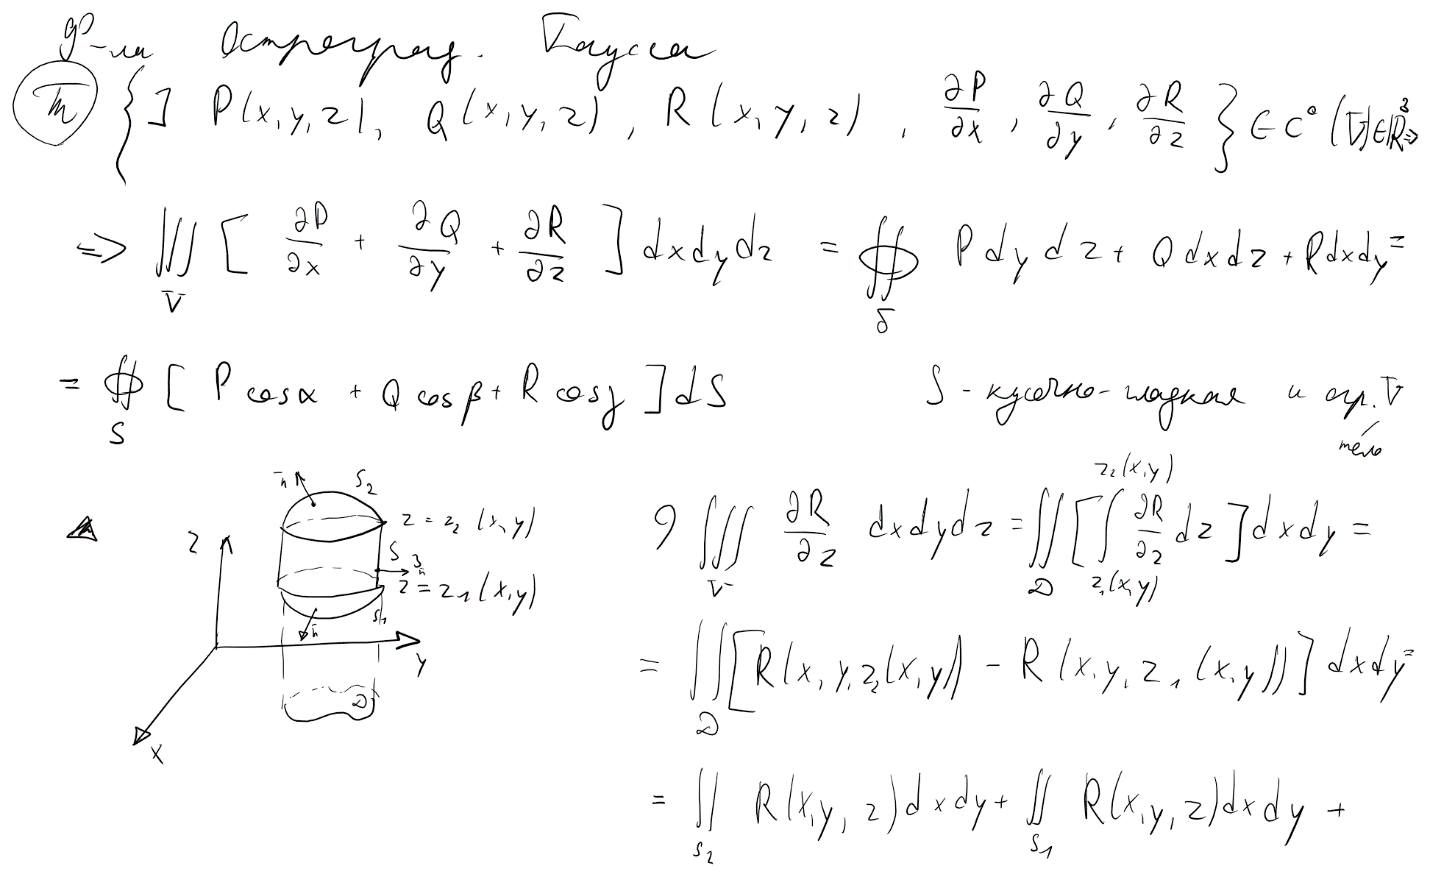 ф-ла Остроград. Гаусса
Tm { ] P(x,y,z), Q(x,y,z), R(x,y,z), ∂P/∂x, ∂Q/∂y, ∂R/∂z } ∈ C⁰(V) ∈ ℝ³ ⇒
⇒ ∭_V [ ∂P/∂x + ∂Q/∂y + ∂R/∂z ] dxdydz = ∯_S Pdydz + Qdxdz + Rdxdy =
= ∯_S [ P cosα + Q cosβ + R cosγ ] dS S - кусочно-гладкая и огр. V
тело
▲
n̄ S₂
z = z₂(x,y)
Z S₃ n̄
z = z₁(x,y)
n̄ S₁
y
D
x
∭_V ∂R/∂z dxdydz = ∬_D [ ∫_{z₁(x,y)}^{z₂(x,y)} ∂R/∂z dz ] dxdy =
= ∬_D [ R(x,y,z₂(x,y)) - R(x,y,z₁(x,y)) ] dxdy =
= ∬_{S₂} R(x,y,z)dxdy + ∬_{S₁} R(x,y,z)dxdy +